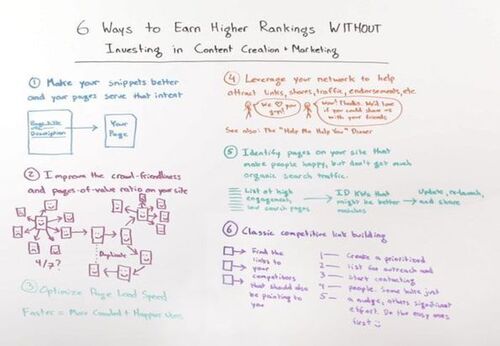 6 Ways to Earn Higher Rankings WITHOUT
Investing in Content Creation + Marketing
① Make your snippets better
and your pages serve that intent
Page title
Description
Your
Page
② Improve the crawl-friendliness
and pages-of-value ratio on your site
4/7?
Duplicate
③ Optimize Page Load Speed
Faster = More Crawled + Happier Users
④ Leverage your network to help
attract links, shares, traffic, endorsements, etc.
We ♥ you
guys!
Wow! Thanks. We'd love
if you could share us
with your friends
See also: The "Help Me Help You" Dinner
⑤ Identify pages on your site that
make people happy, but don't get much
organic search traffic.
List of high
engagement,
low search pages
ID KWs that
might be better
matches
Update, re-launch,
and share
⑥ Classic competitive link building
Find the
links to
your
competitors
that should also
be pointing to
you
1 — Create a prioritized
2 — list for outreach and
3 — start contacting
4 — people. Some take just
5 — a nudge, others significant
effort. Do the easy ones
first :)